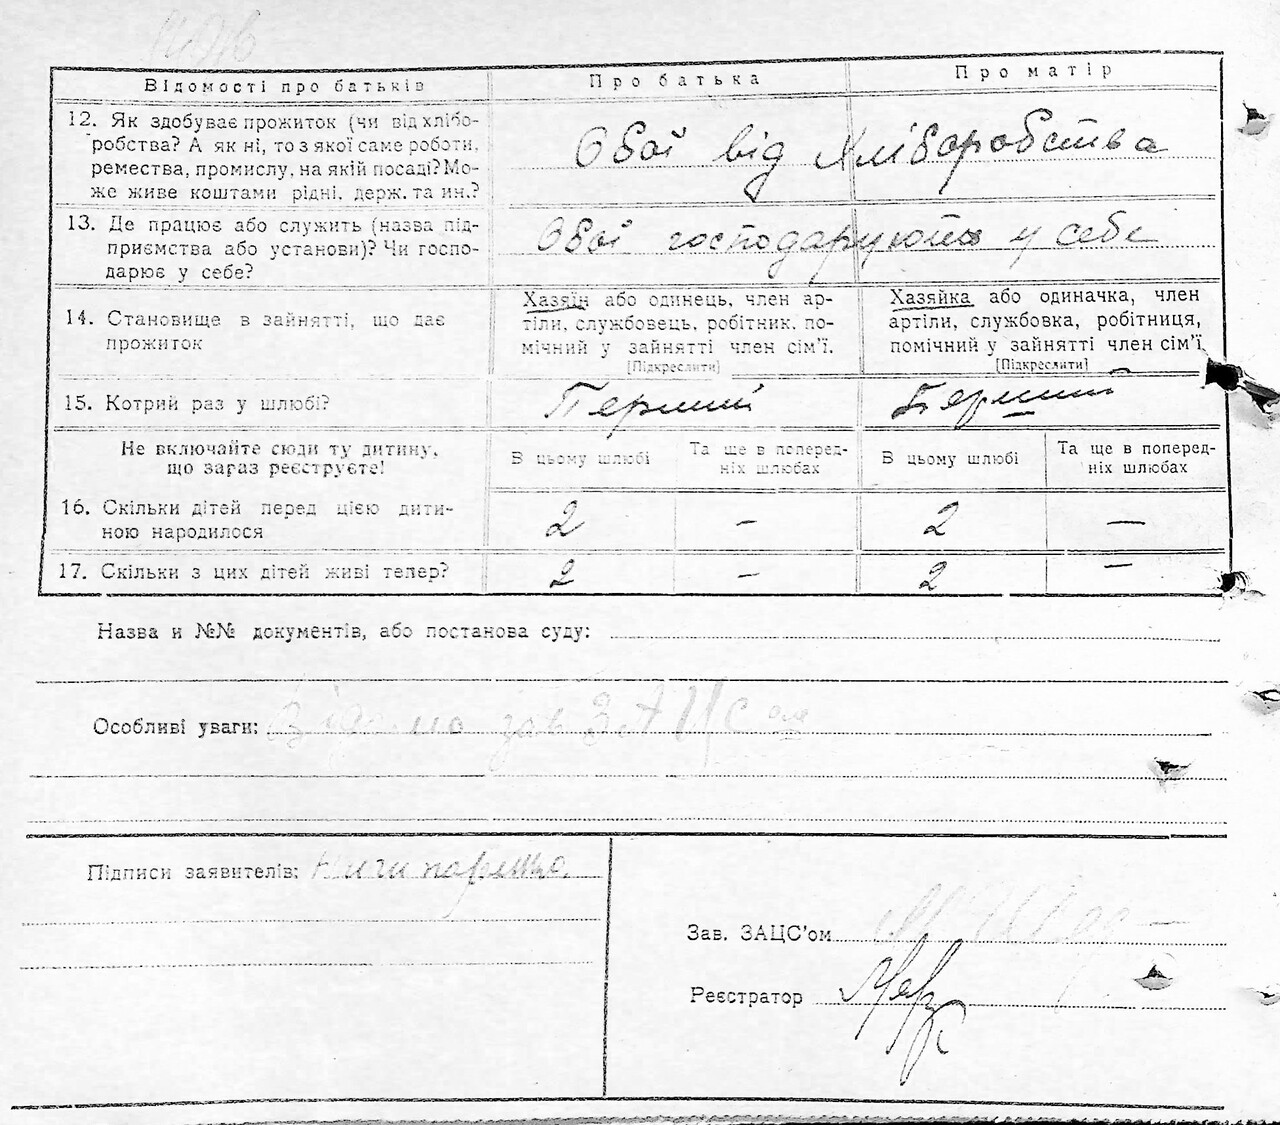 Відомості про батьків Про батька Про матір
12. Як здобуває прожиток (чи від хлібо-
робства? А як ні, то з якої саме роботи,
ремества, промислу, на якій посаді? Мо-
же живе коштами рідні, держ. та ин.?
Обоі від хліборобства
13. Де працює або служить (назва під-
приємства або установи)? Чи госпо-
дарює у себе?
Обоі господарують у себе
14. Становище в зайнятті, що дає
прожиток
Хазяїн або одинець, член ар-
тіли, службовець, робітник, по-
мічний у зайнятті член сім'ї.
[Підкреслити]
Хазяйка або одиначка, член
артіли, службовка, робітниця,
помічний у зайнятті член сім'ї
[Підкреслити]
15. Котрий раз у шлюбі? Перший Перший
Не включайте сюди ту дитину,
що зараз реєструєте!
В цьому шлюбі
Та ще в поперед-
ніх шлюбах
В цьому шлюбі
Та ще в поперед-
ніх шлюбах
16. Скільки дітей перед цією дити-
ною народилося
2 – 2 —
17. Скільки з цих дітей живі тепер? 2 – 2 –
Назва и №№ документів, або постанова суду:
Особливі уваги: зав ЗАЦС
Підписи заявителів:
Зав. ЗАЦС'ом
Реєстратор